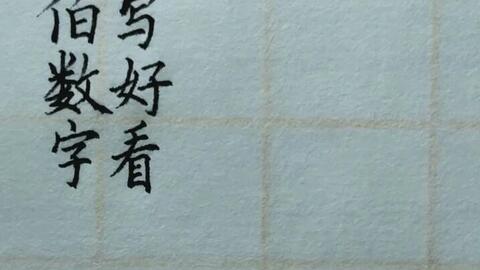 写好看
伯数字